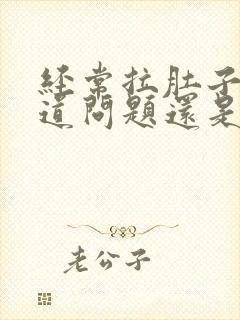 經常拉肚子
道問題還是
老公子